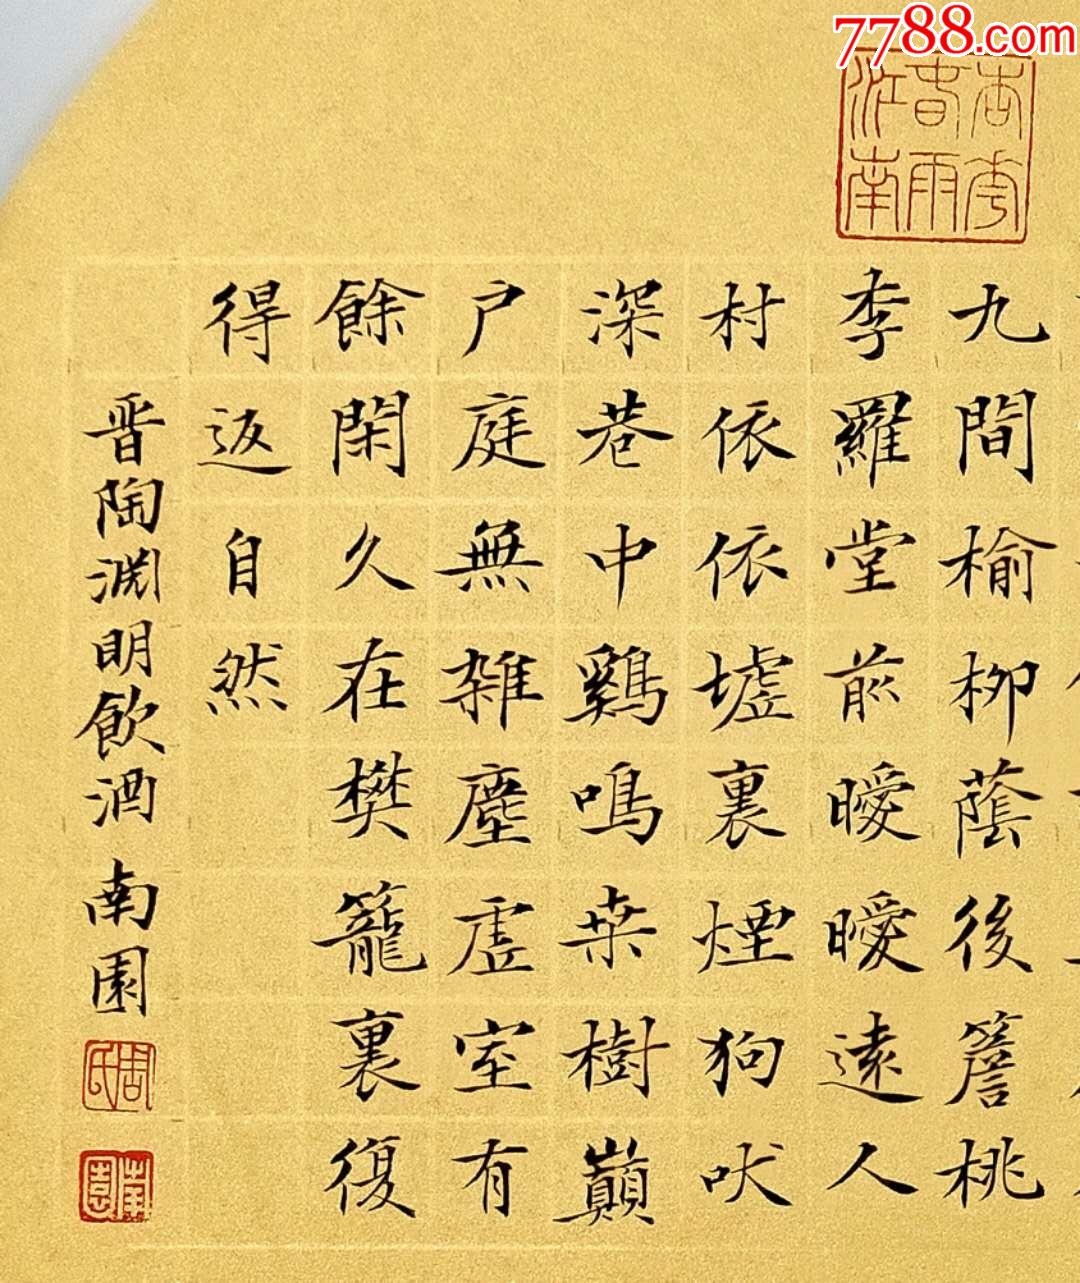 7788.com
杏花
春雨
江南
九間榆柳蔭後簷桃
李羅堂前曖曖遠人
村依依墟裏煙狗吠
深巷中鷄鳴桒樹巔
户庭無雜塵虛室有
餘閑久在樊籠裏復
得返自然
晋陶淵明飲酒 南園
周氏
南園